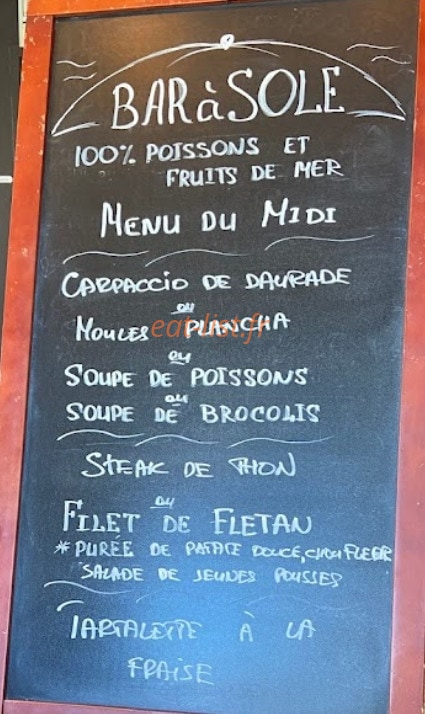 BAR à SOLE
100% POISSONS ET
FRUITS DE MER
MENU DU MIDI
CARPACCIO DE DAURADE
ou
MOULES PLANCHA
eat-list.fr
ou
SOUPE DE POISSONS
ou
SOUPE DE BROCOLIS
STEAK DE THON
ou
FILET DE FLETAN
* PURÉE DE PATATE DOUCE, CHOU FLEUR
SALADE DE JEUNES POUSSES
TARTALETTE À LA
FRAISE